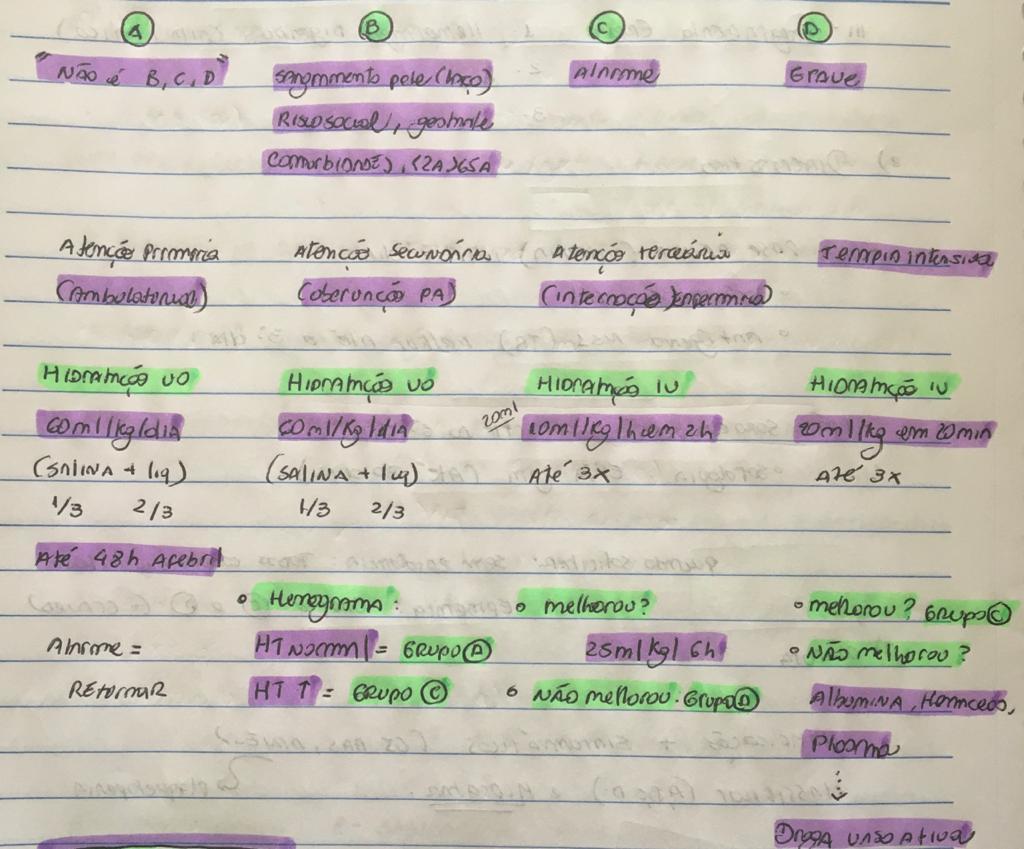 A B C D
"NÃO é B, C, D" sangramento pele (laço) Alarme Grave
Risco social, gestante
comorbidade), <2A>65A
Atenção Primaria Atenção Secundária Atenção terciária Terapia intensiva
(Ambulatorial) (observação PA) (internação Enfermaria)
HIDRATAÇÃO VO HIDRATAÇÃO VO HIDRATAÇÃO IV HIDRATAÇÃO IV
60ml/kg/dIA 60ml/kg/dIA 20ml 10ml/kg/h em 2h 20ml/kg em 20min
(SALINA + liq) (SALINA + liq) Até 3x Até 3x
1/3 2/3 1/3 2/3
Até 48h Afebril
Hemograma: melhorou? melhorou? Grupo C
Alarme = HT Normal = Grupo A 25ml/kg/6h NÃO melhorou?
REtornaR HT ↑ = Grupo C NÃO melhorou: Grupo D Albumina, Hemáceas,
Plasma
Droga vaso Ativa